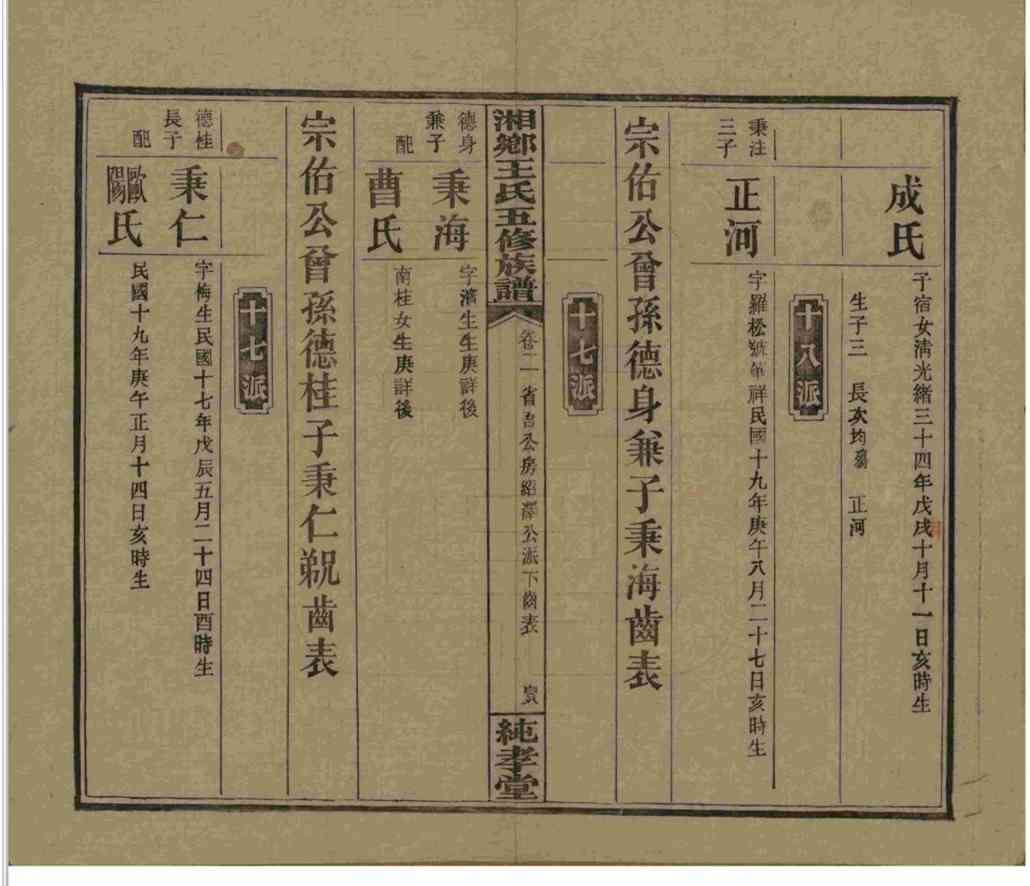 成氏
子宿女淸光緒三十四年戊戌十月十一日亥時生
生子三 長次均殤 正河
十八派
秉注
三子
正河
字羅松號華祥民國十九年庚午八月二十七日亥時生
宗佑公曾孫德身兼子秉海齒表
十七派
湘鄉王氏五修族譜
卷二 省吾公房紹澤公派下齒表
純孝堂
德身
兼子
秉海
字濱生生庚詳後
配
曹氏
南桂女生庚詳後
宗佑公曾孫德桂子秉仁覡齒表
十七派
德桂
長子
秉仁
字梅生民國十七年戊辰五月二十四日酉時生
配
歐陽氏
民國十九年庚午正月十四日亥時生